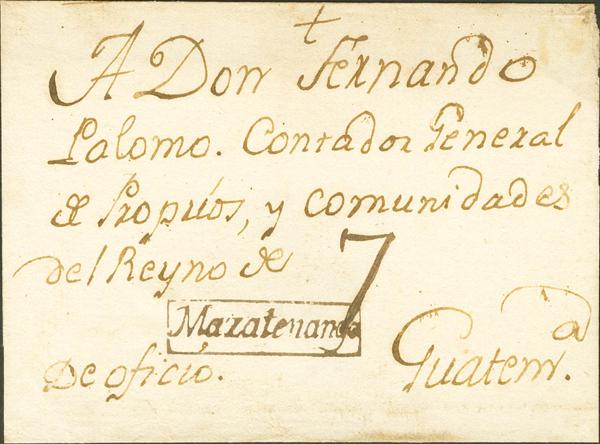 +
A Don Fernando
Palomo. Contador General
de Propuos, y comunidades
del Reyno de 7
Mazatenango
Guatem.a
De oficio.